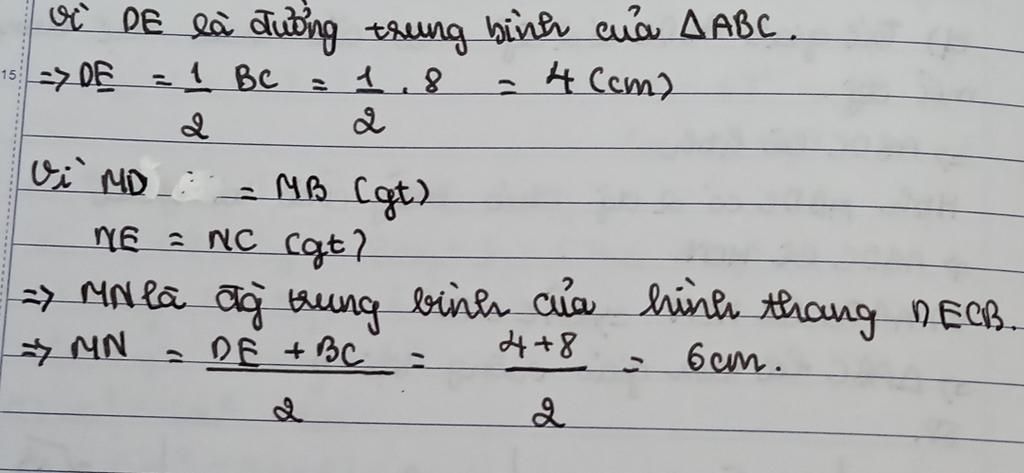 Vì DE là đường trung bình của ΔABC.
15
=> DE = 1/2 BC = 1/2 . 8 = 4 (cm)
Vì MD = MB (gt)
NE = NC (gt)
=> MN là đg trung bình của hình thang DECB.
=> MN = (DE + BC)/2 = (4+8)/2 = 6cm.